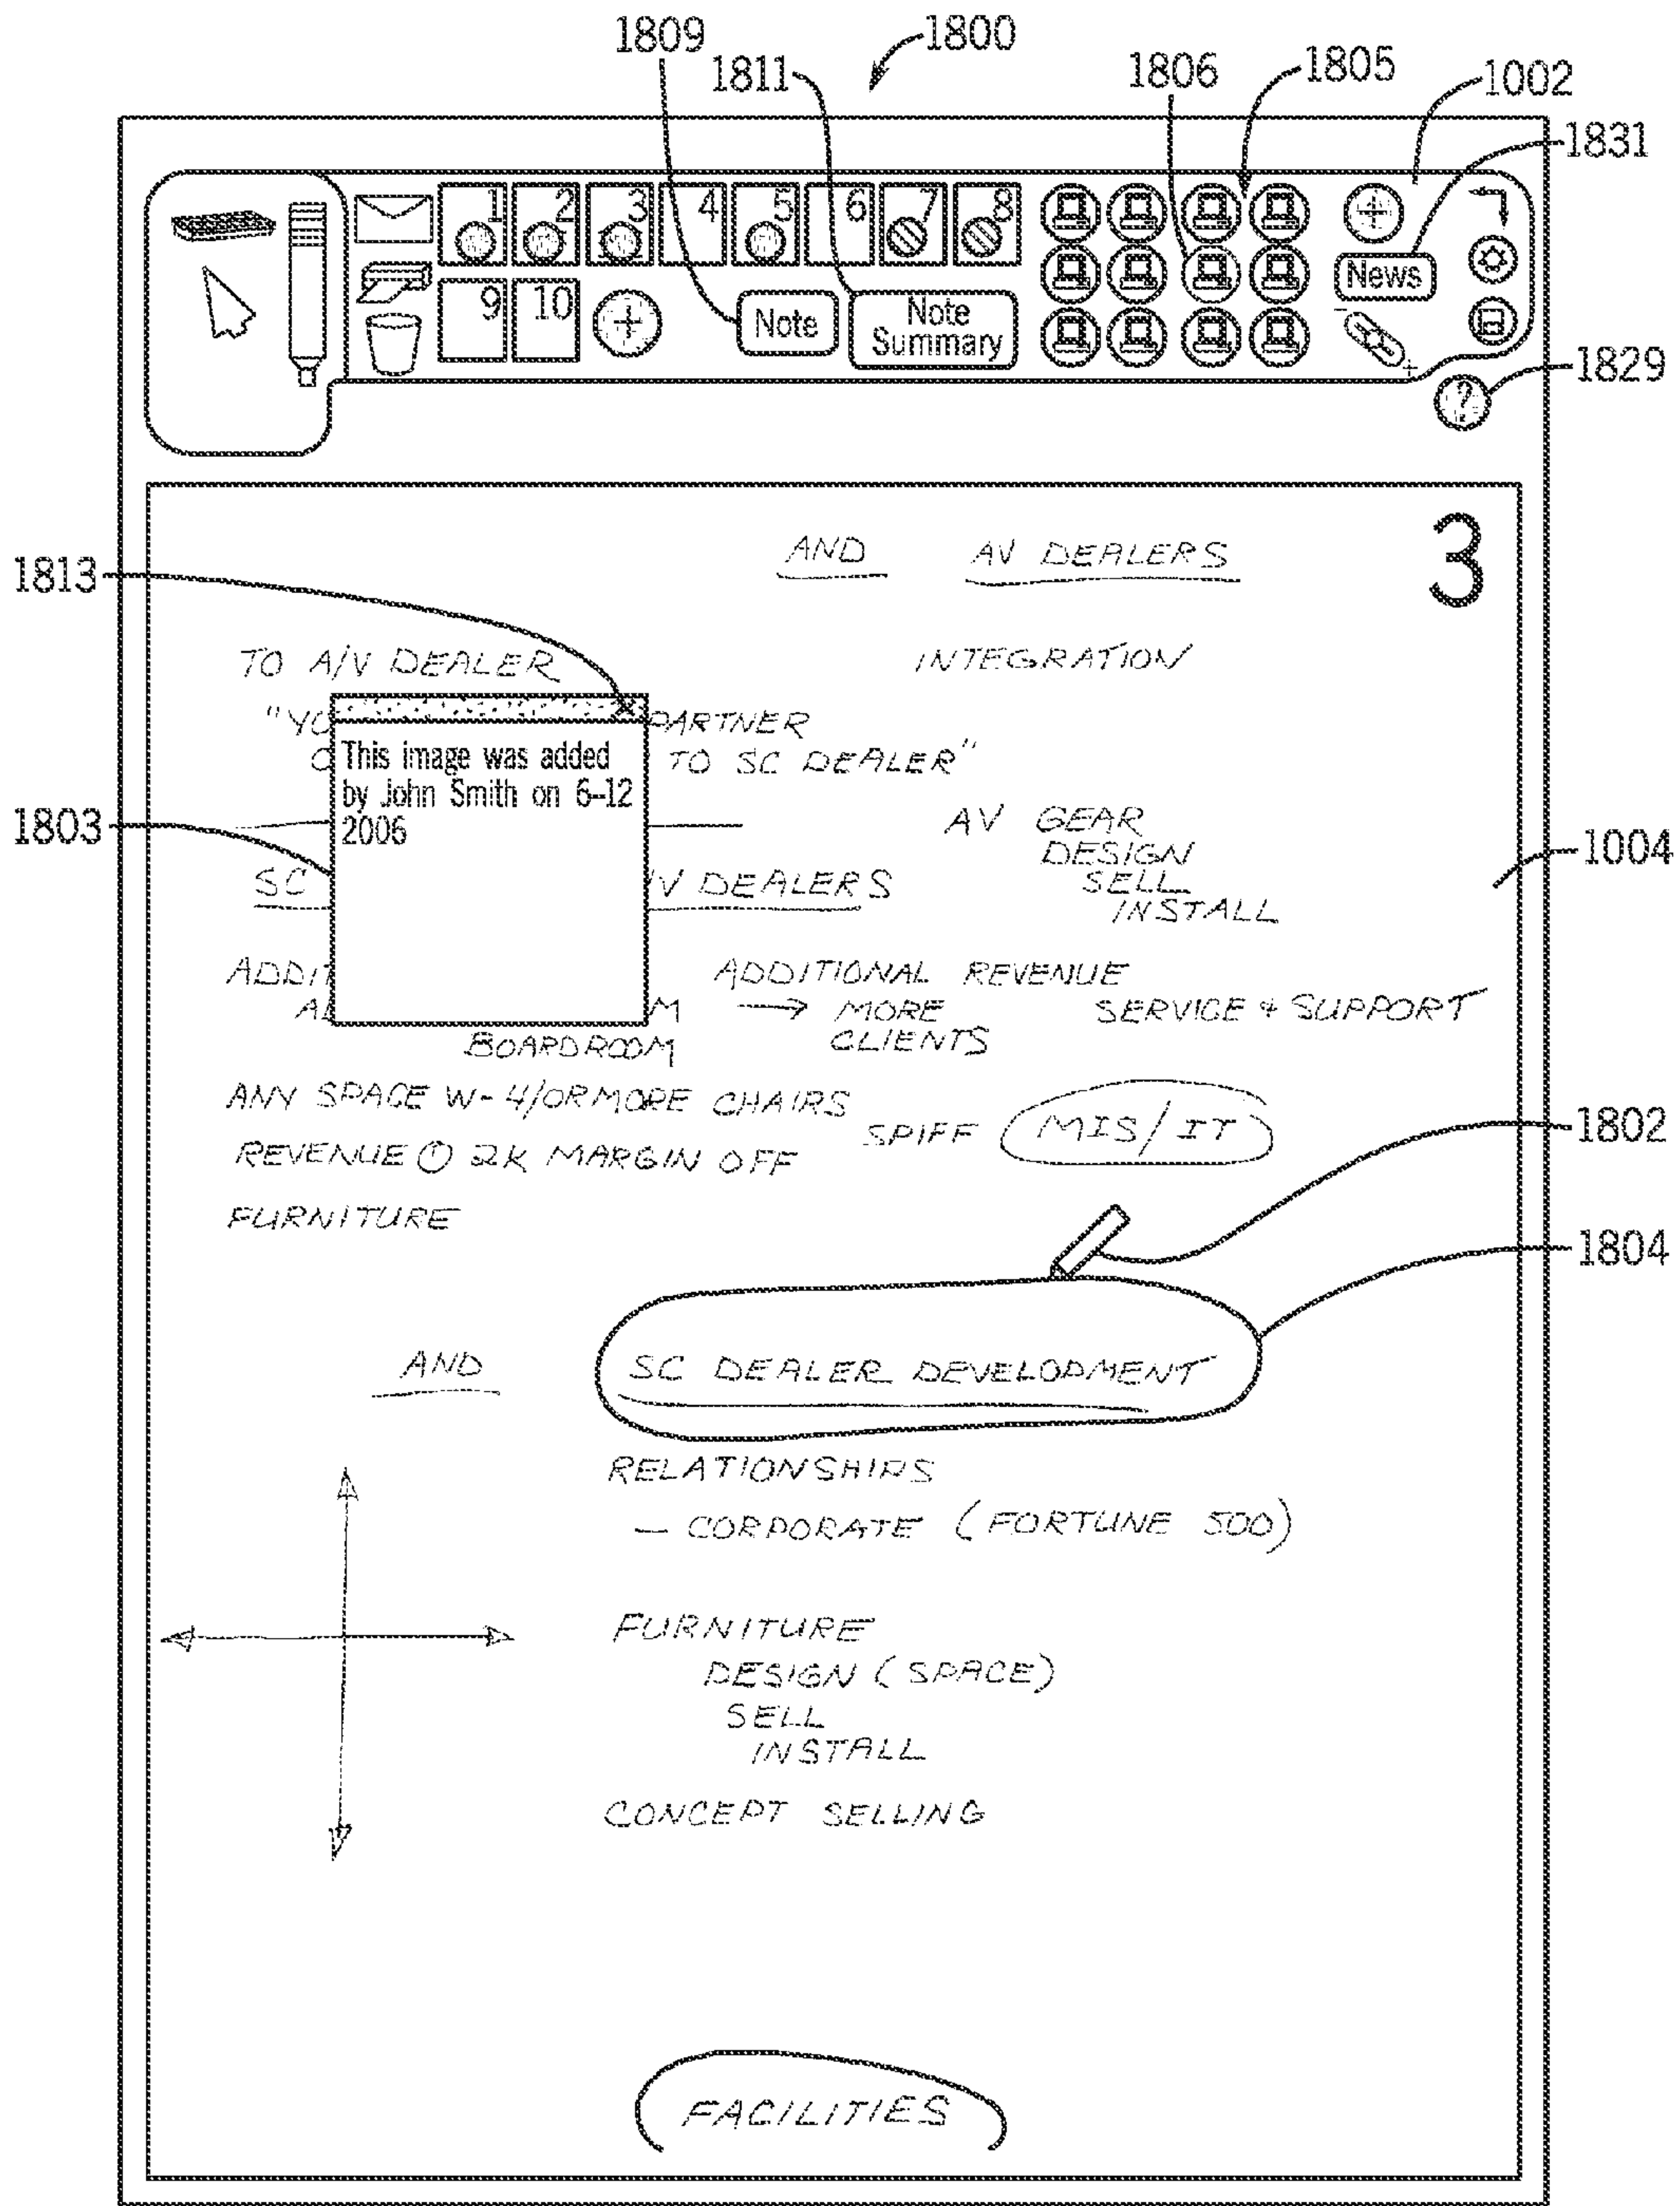 1809
1800
1811
1806
1805
1002
1831
1 2 3 4 5 6 7 8
9 10
Note
Note
Summary
News
1829
?
3
AND AV DEALERS
1813
TO A/V DEALER
INTEGRATION
PARTNER
TO SC DEALER"
This image was added
by John Smith on 6-12
2006
1803
AV GEAR
DESIGN
SELL
INSTALL
1004
SC V DEALERS
ADDITIONAL REVENUE
→ MORE
CLIENTS
SERVICE & SUPPORT
BOARDROOM
ANY SPACE W- 4/OR MORE CHAIRS
SPIFF MIS/IT
REVENUE 2K MARGIN OFF
FURNITURE
1802
1804
AND SC DEALER DEVELOPMENT
RELATIONSHIPS
— CORPORATE (FORTUNE 500)
FURNITURE
DESIGN (SPACE)
SELL
INSTALL
CONCEPT SELLING
FACILITIES